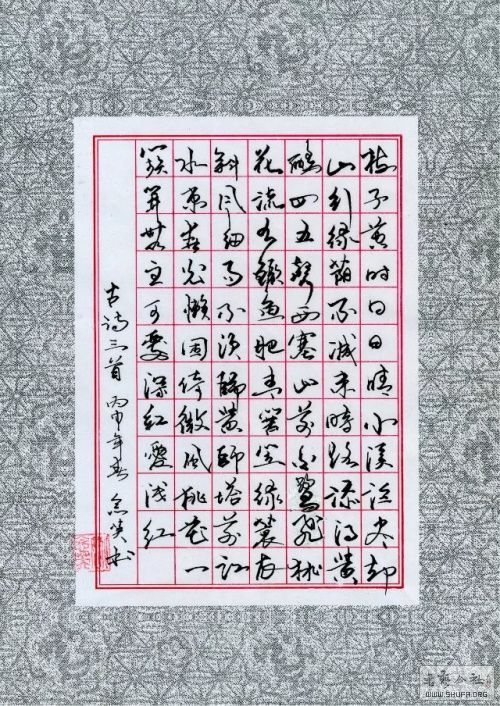 梅子黄时日日晴小溪泛尽却
山行绿荫不减来时路添得黄
鹂四五声西塞山前白鹭飞桃
花流水鳜鱼肥青箬笠绿蓑衣
斜风细雨不须归黄师塔前江
水东春光懒困倚微风桃花一
簇开无主可爱深红爱浅红
古诗三首 丙申年春 书
WWW.SHUFA.ORG